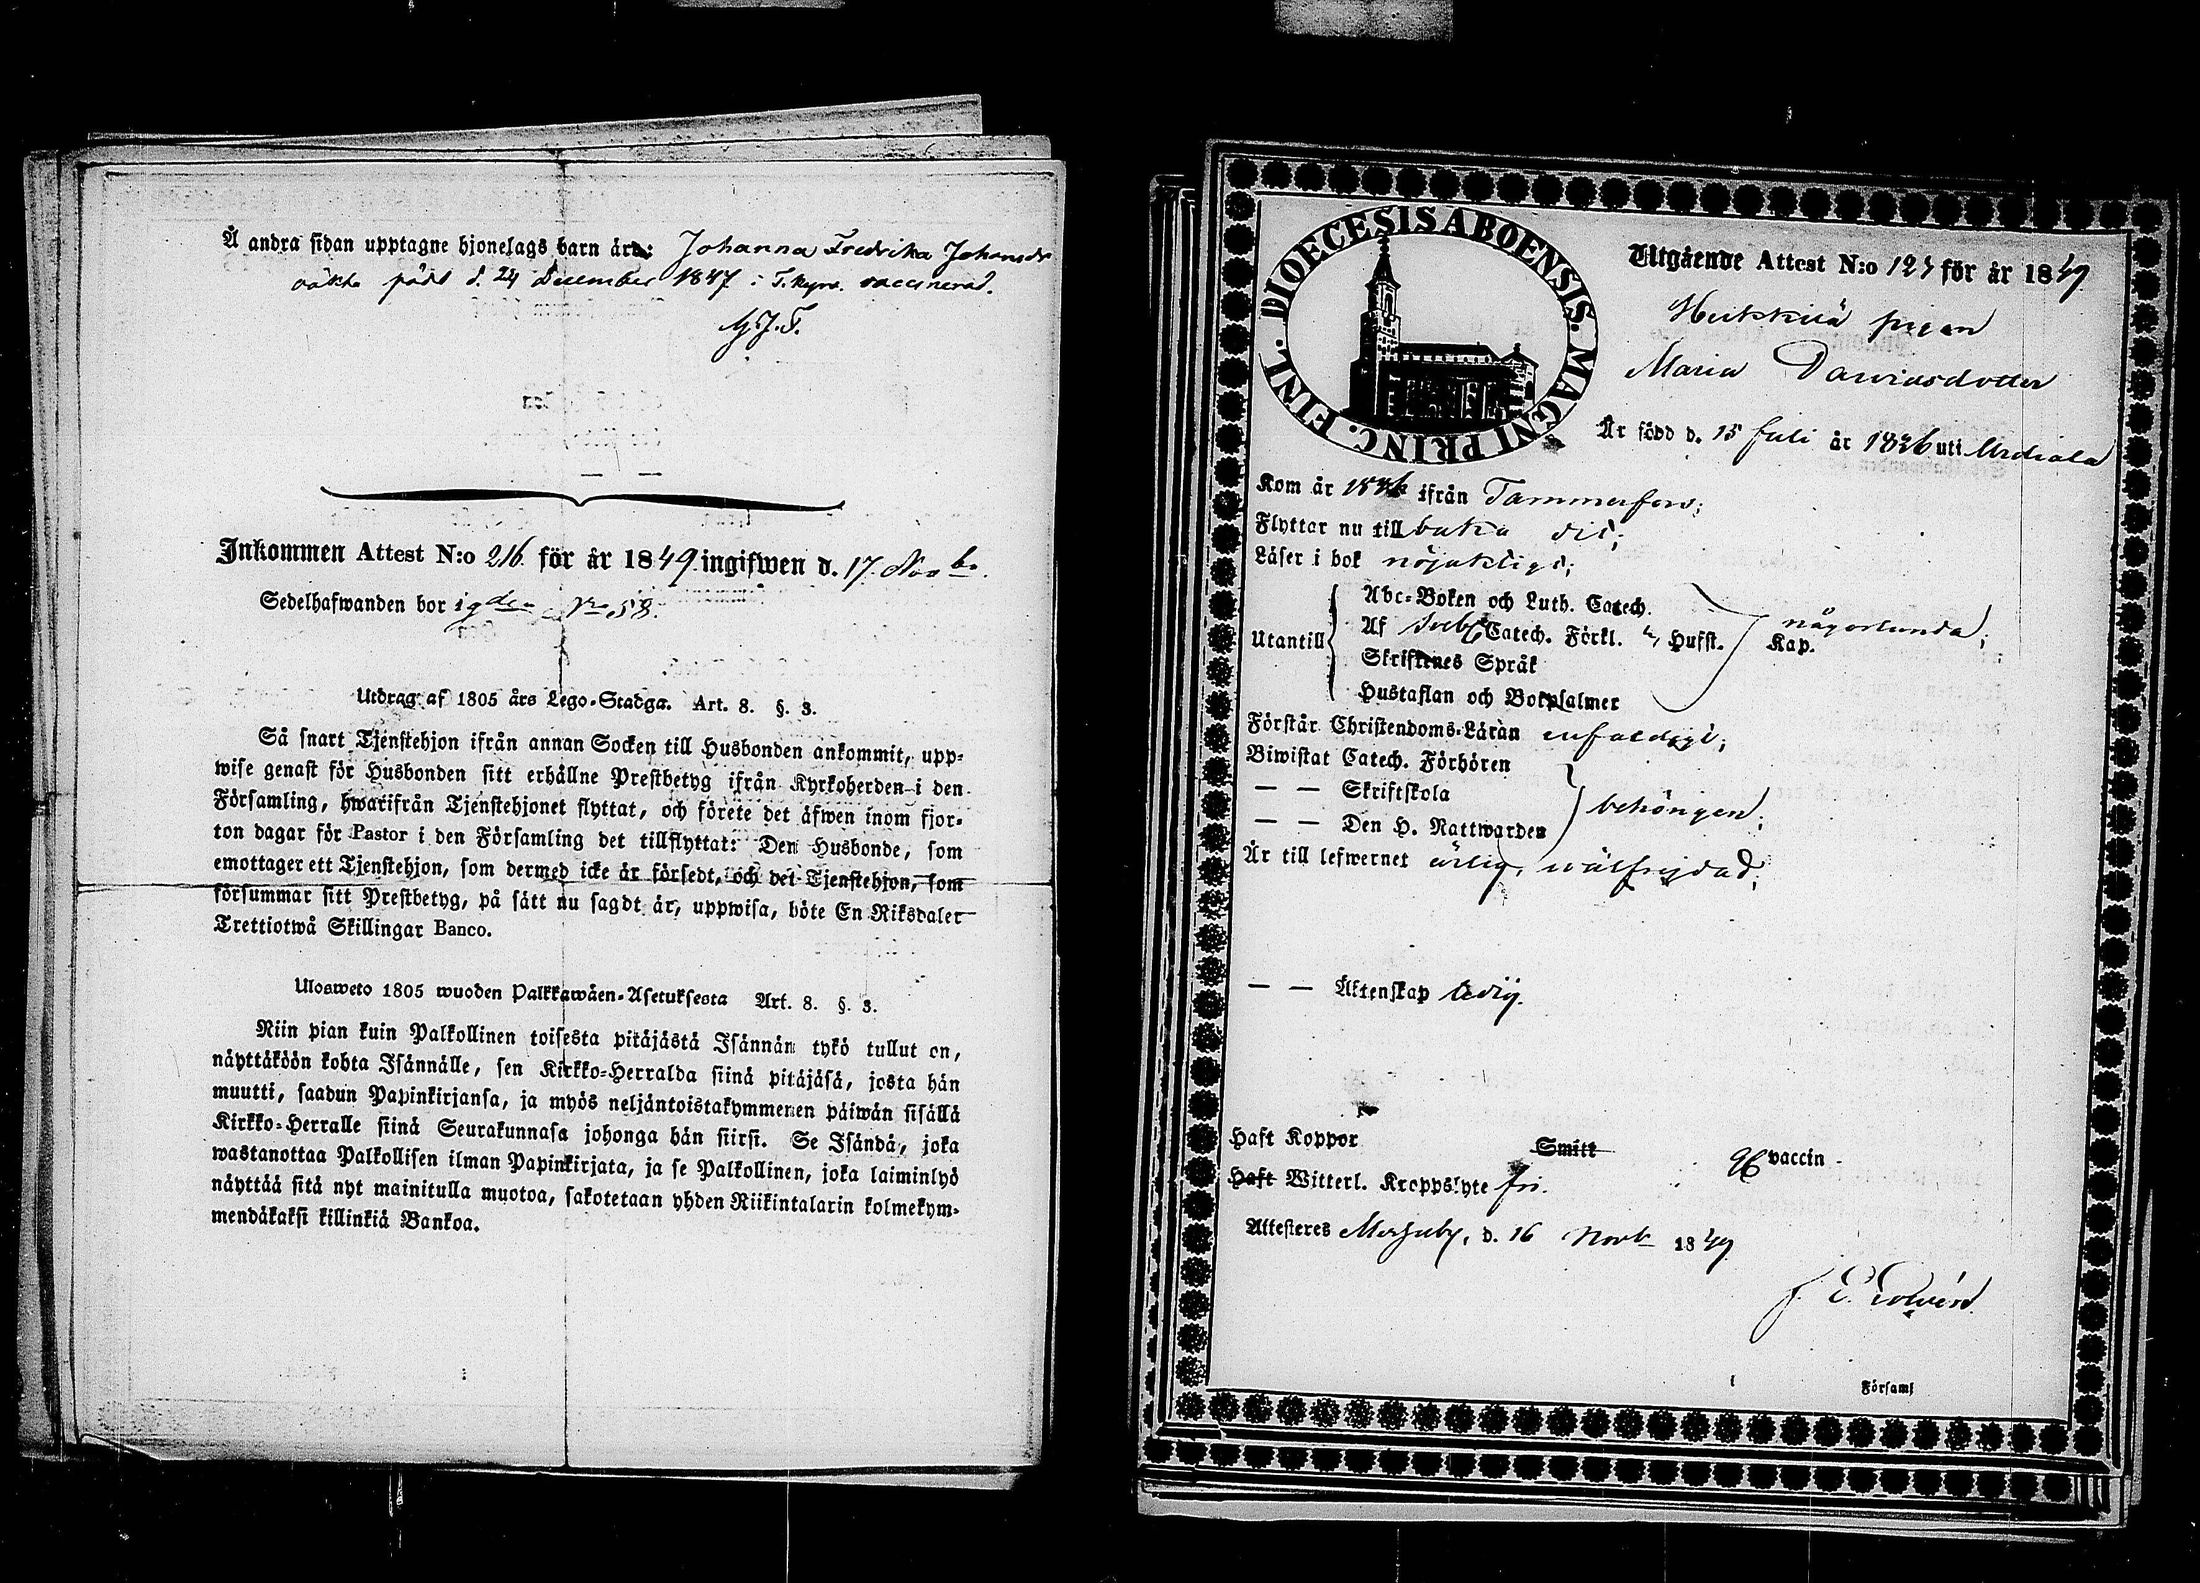 Å andra sidan upptagne hjonelags barn äro: Johanna Fredrika Johansdr
oäkta född d. 24 December 1847 i T.kyro. vaccinerad.
Inkommen Attest N:o 216 för år 1849 ingifwen d. 17 Novbr.
Sedelhafwanden bor i gden No 58.
Utdrag af 1805 års Lego-Stadga. Art. 8. §. 3.
Så snart Tjenstehjon ifrån annan Socken till Husbonden ankommit, upp-
wise genast för Husbonden sitt erhållne Prestbetyg ifrån Kyrkoherden i den
Församling, hwarifrån Tjenstehjonet flyttat, och förete det äfwen inom fjor-
ton dagar för Pastor i den Församling det tillflyttat: Den Husbonde, som
emottager ett Tjenstehjon, som dermed icke är försedt, och det Tjenstehjon, som
försummar sitt Prestbetyg, på sätt nu sagdt är, uppwisa, böte En Riksdaler
Trettiotwå Skillingar Banco.
Ulosweto 1805 wuoden Palkkawäen-Asetuksesta Art. 8. §. 3.
Niin pian kuin Palkollinen toisesta pitäjästä Isännän tykö tullut on,
näyttäköön kohta Isännälle, sen Kirkko-Herralda siinä pitäjäsä, josta hän
muutti, saadun Papinkirjansa, ja myös neljäntoistakymmenen päiwän sisällä
Kirkko-Herralle siinä Seurakunnasa johonga hän siirsi. Se Isändä, joka
wastanottaa Palkollisen ilman Papinkirjata, ja se Palkollinen, joka laiminlyö
näyttää sitä nyt mainitulla muotoa, sakotetaan yhden Riikintalarin kolmekym-
mendäkaksi killinkiä Bankoa.
DIOECESIS ABOENSIS. MAGNI PRINC. FINL.
Utgående Attest N:o 124 för år 1849
Heikkilä pigan
Maria Dawidsdotter
Är född d. 15 Juli år 1826 uti Urdiala
Kom år 1846 ifrån Tammerfors;
Flyttar nu till baka dit;
Läser i bok nöjaktligt;
Utantill
Abc-Boken och Luth. Catech.
Af Sveb. Catech. Förkl. Hufst. Kap. någorlunda;
Skriftenes Språk
Hustaflan och Botpsalmer
Förstår Christendoms-Läran enfaldigt;
Biwistat Catech. Förhören
— — Skriftskola
— — Den H. Nattwarden behörigen;
Är till lefwernet ärlig, wälfrejdad;
— — Äktenskap ledig.
Haft Koppor Smitt vaccin
Haft Witterl. Kroppslyte fri.
Attesteres Messuby, d. 16 Novb 1849
Församl